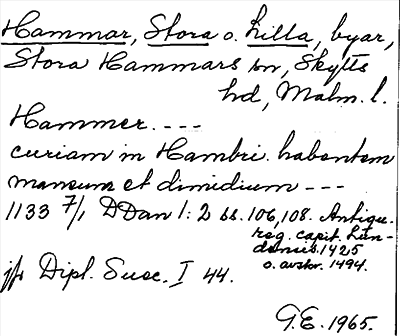 Hammar, Stora o. Lilla, byar,
Stora Hammars sn, Skytts
hd, Malm. l.
Hammer. ---
curiam in Hambri habentem
mansum et dimidium ---
1133 7/1 DDan 1: 2 ss. 106, 108. Antiqu.
reg. capit. Lun-
densis. 1425
o. avskr. 1494.
jfr Dipl. Suec. I 44.
G.E. 1965.